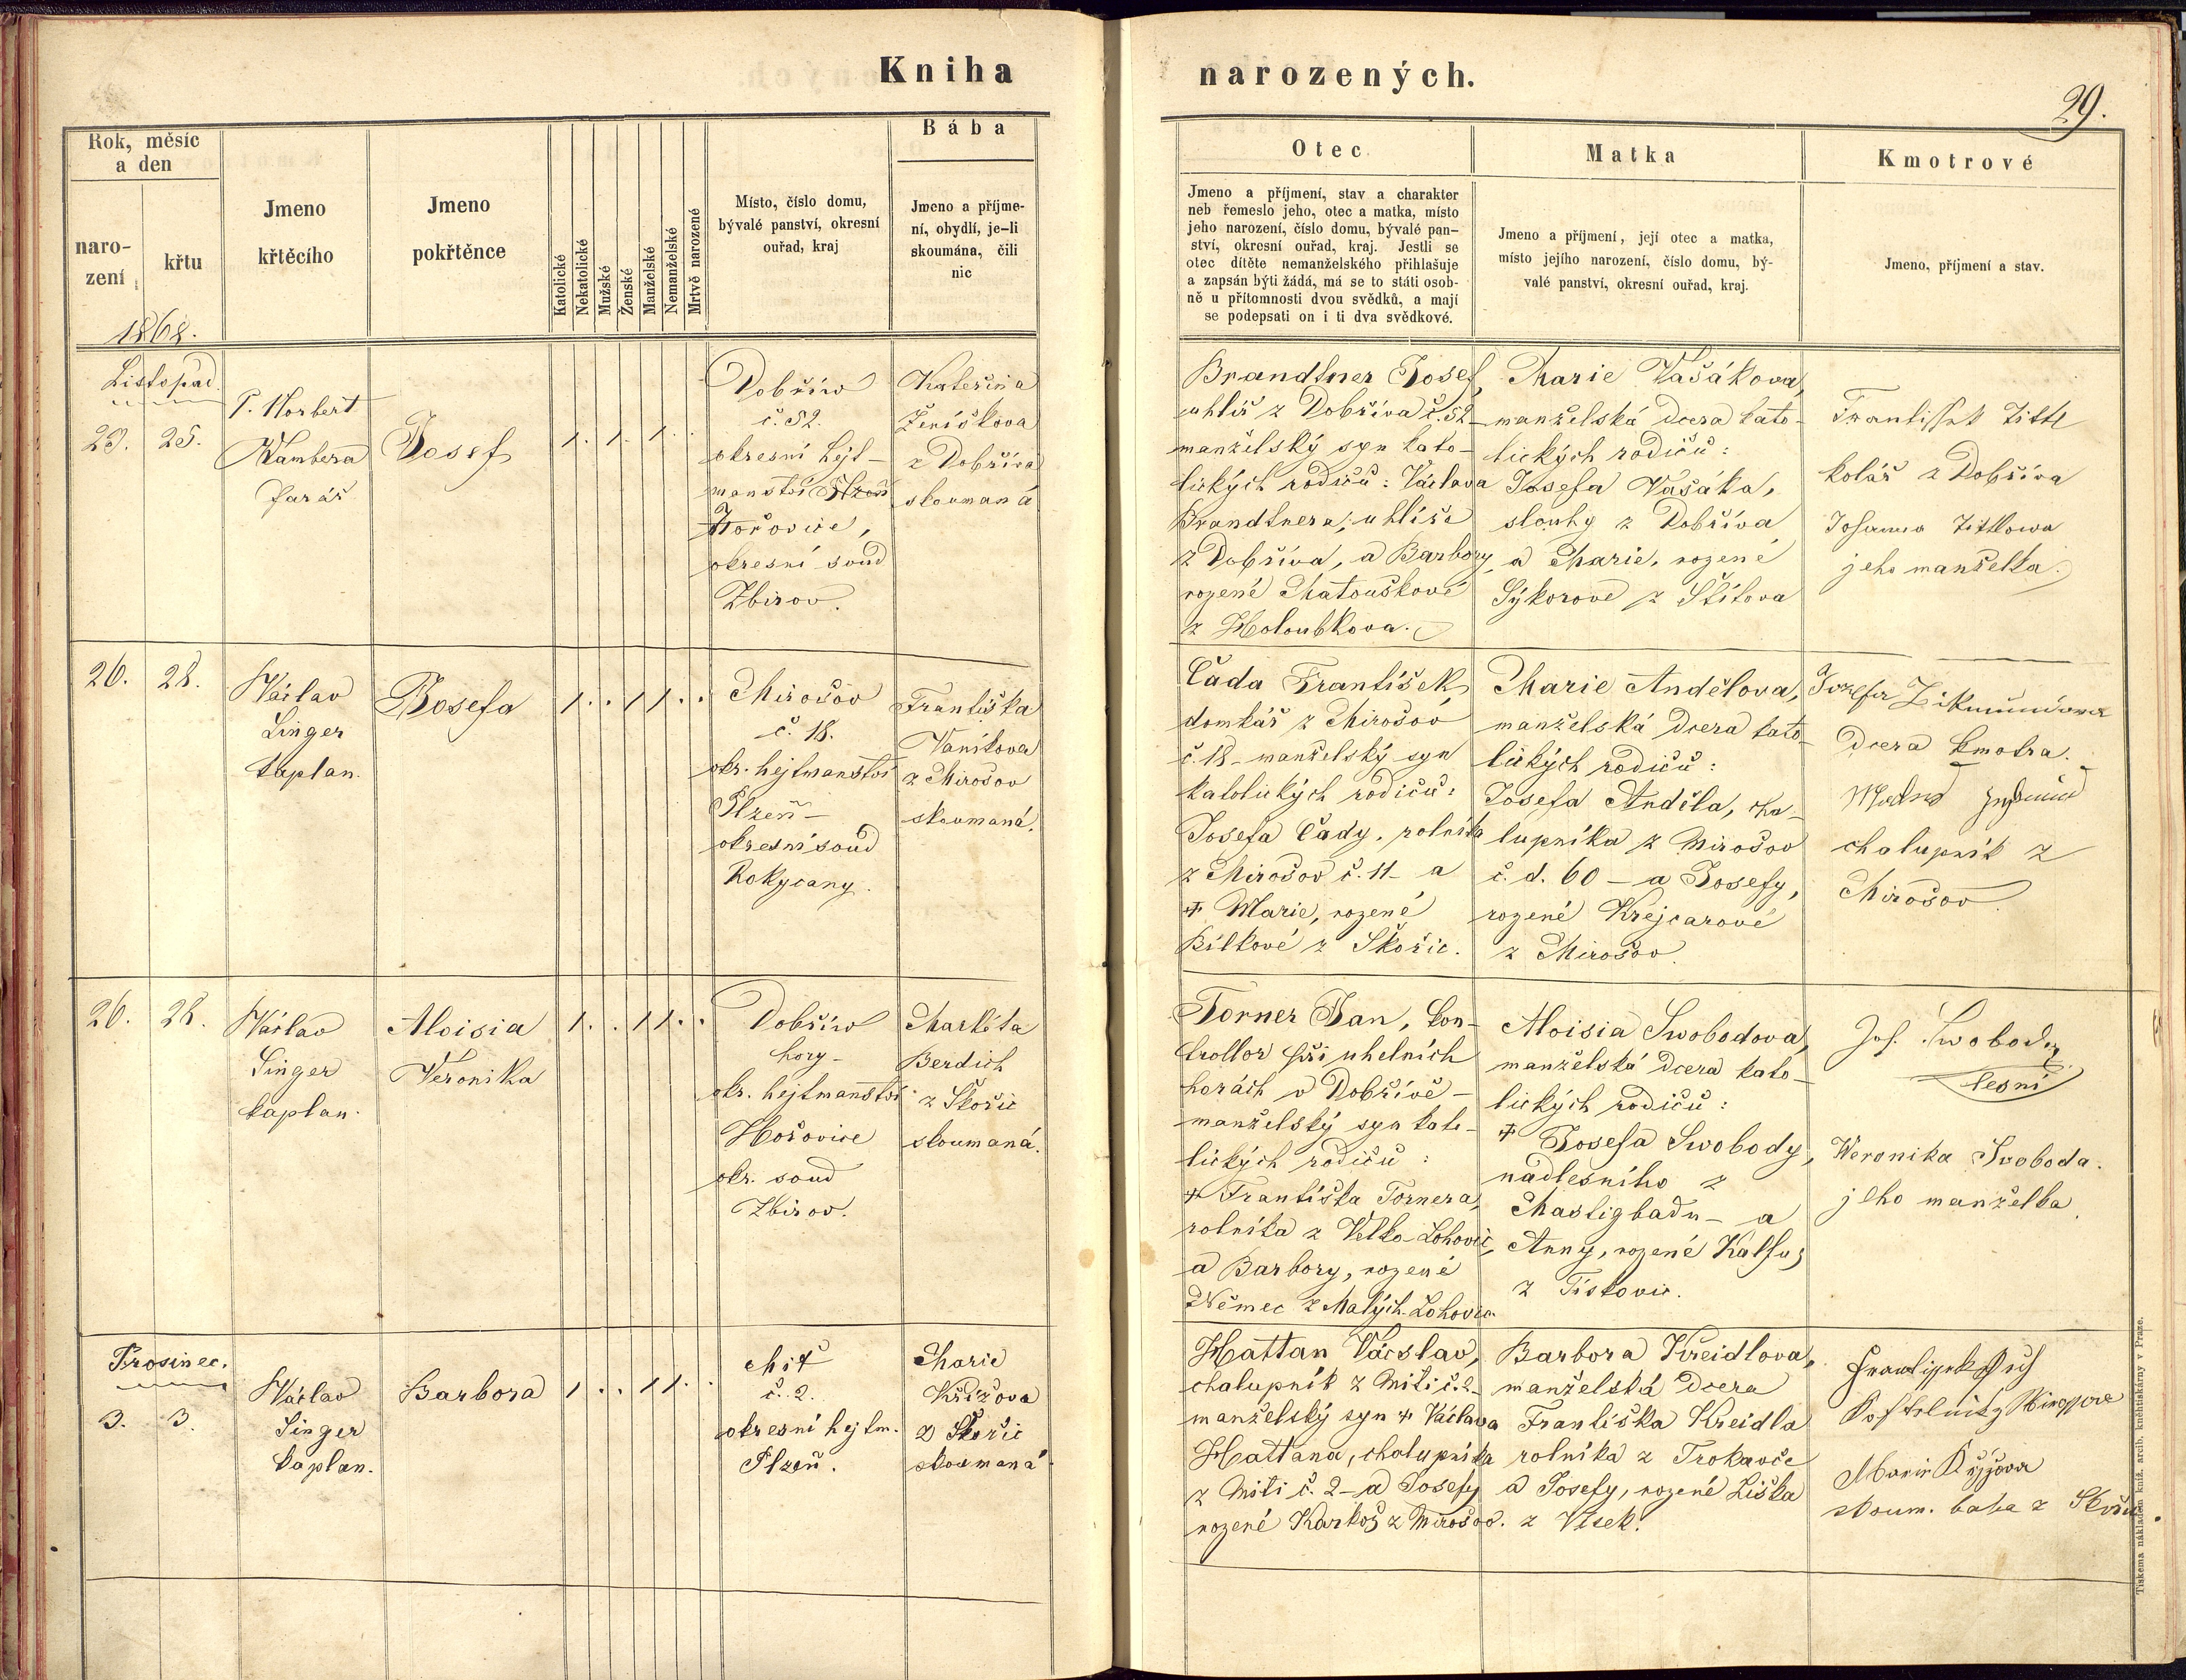 Kniha
narozených.
29.
Rok, měsíc
a den
naro-
zení
křtu
1868.
Jmeno
křtěcího
Jmeno
pokřtěnce
Katolické
Nekatolické
Mužské
Ženské
Manželské
Nemanželské
Mrtvě narozené
Místo, číslo domu,
bývalé panství, okresní
ouřad, kraj
Bába
Jmeno a příjme-
ní, obydlí, je-li
skoumána, čili
nic
Otec
Jmeno a příjmení, stav a charakter
neb řemeslo jeho, otec a matka, místo
jeho narození, číslo domu, bývalé pan-
ství, okresní ouřad, kraj. Jestli se
otec dítěte nemanželského přihlašuje
a zapsán býti žádá, má se to státi osob-
ně u přítomnosti dvou svědků, a mají
se podepsati on i ti dva svědkové.
Matka
Jmeno a příjmení, její otec a matka,
místo jejího narození, číslo domu, bý-
valé panství, okresní ouřad, kraj.
Kmotrové
Jmeno, příjmení a stav.
Listopad.
23. 25.
P. Norbert
Wambera
farář
Josef
1. 1. 1.
Dobřiw
č. 52.
okresní hejt-
manství
Hořovice,
okresní soud
Zbirov.
Kateřina
Ženíškova
z Dobříva
skoumaná
Brandtner Josef,
uhlíř z Dobříva č. 52 -
manželský syn kato-
lických rodičů: Václava
Brandtnera, uhlíře
z Dobříva, a Barbory,
rozené Matouškové
z Holoubkova.
Marie Vašákova,
manželská dcera kato-
lických rodičů:
Josefa Vašáka,
slouhy z Dobříva
a Marie, rozené
Sýkorové z Štítova
Tittl
kolář z Dobříva
Tittlowa
jeho manželka.
26. 28.
Václav
Singer
kaplan.
Josefa
1. . 1 1 . .
Mirošov
č. 18.
okr. hejtmanství
Plzeň -
okresní soud
Rokycany.
Františka
Vaníkova
z Mirošov
skoumaná.
Čada František
domkář z Mirošov
č. 18 - manželský syn
katolických rodičů:
Josefa Čady, rolníka
z Mirošov č. 11 - a
+ Marie, rozené
Bílkové z Skořic.
Marie Andělova,
manželská dcera kato-
lických rodičů:
Josefa Anděla, cha-
lupníka z Mirošov
č. d. 60 - a Josefy,
rozené Krejcarové
z Mirošov.
Jozefa Zikmundowa
dcera kmotra.
chalupník z
Mirošov.
26. 28.
Václav
Singer
kaplan.
Aloisia
Veronika
1. . 1 1 . .
Dobřiw
hory -
okr. hejtmanství
Hořovice
okr. soud
Zbirov.
Markéta
Berdich
z Skořic
skoumaná.
Torner Jan, kon-
trollor při uhelních
horách v Dobřívě -
manželský syn kato-
lických rodičů:
+ Františka Tornera,
rolníka z Velko-Lohovic,
a Barbory, rozené
Němec z Malých-Lohovic.
Aloisia Swobodova,
manželská dcera kato-
lických rodičů:
+ Josefa Swobody,
nadlesního z
Mastigbadu - a
Anny, rozené Kalfus
z Tiskovic.
Jos. Swoboda
lesní
Weronika Swoboda.
jeho manželka.
Prosinec.
3. 3.
Václav
Singer
kaplan.
Barbora
1 . . 1 1 .
Mitť
č. 2.
okresní hejtm.
Plzeň.
Marie
Křížova
z Skořic
skoumaná.
Hattan Václav,
chalupník z Miti č. 2 -
manželský syn + Václava
Hattana, chalupníka
z Miti č. 2 - a Josefy
rozené Karkoš z Mirošov.
Barbora Kreidlova,
manželská dcera
Františka Kreidla
rolníka z Trokavce
a Josefy, rozené Liška
z Vísek.
Marie Křížova
skoum. baba z Skořic
Tiskem a nákladem kníž. arcib. kněhtiskárny v Praze.